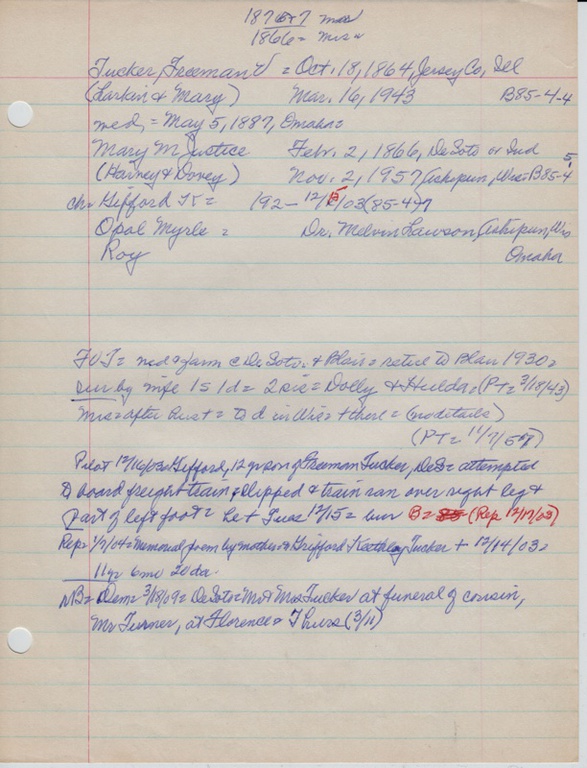 1876+7 mss
1866= Mrs=
Tucker, Freeman V = Oct. 18, 1864, Jersey Co, Ill
(Larkin & Mary) Mar. 16, 1943 B85-4-4
med, = May 5, 1887, Omaha=
Mary M Justice Febr. 2, 1866, DeSoto or Ind
(Harvey & Dovey) Nov. 2, 1957, Ashipun, Wis= B85-4 5,
ch= Gifford K = 192- 12/15/03 (85-4)7
Opal Myrle = Dr. Melvin Lawson, Ashipun, Wis
Roy Omaha
FVT= med & farm c DeSoto, & Blair= retired to Blair 1930=
sur by wife 1s 1d = 2 sis = Dolly & Hulda, (PT= 3/18/43)
Mrs= after hus + = to d in Wis = + there = (no details)
(PT= 11/7/57)
Pilot 12/16/03= Gifford, 12 yr son of Freeman Tucker, DeS= attempted
to board freight train, slipped & train ran over right leg &
part of left foot = he + Tues 12/15 = bur B= 85 (Rep 12/17/03)
Rep= 1/7/04= Memorial poem by mother= Gifford Keathley Tucker + 12/14/03=
11 yr 6 mo 20 da.
NB= Dem= 3/18/09= DeSoto= Mr & Mrs Tucker at funeral of cousin,
Mr Turner, at Florence= Thurs (3/11)